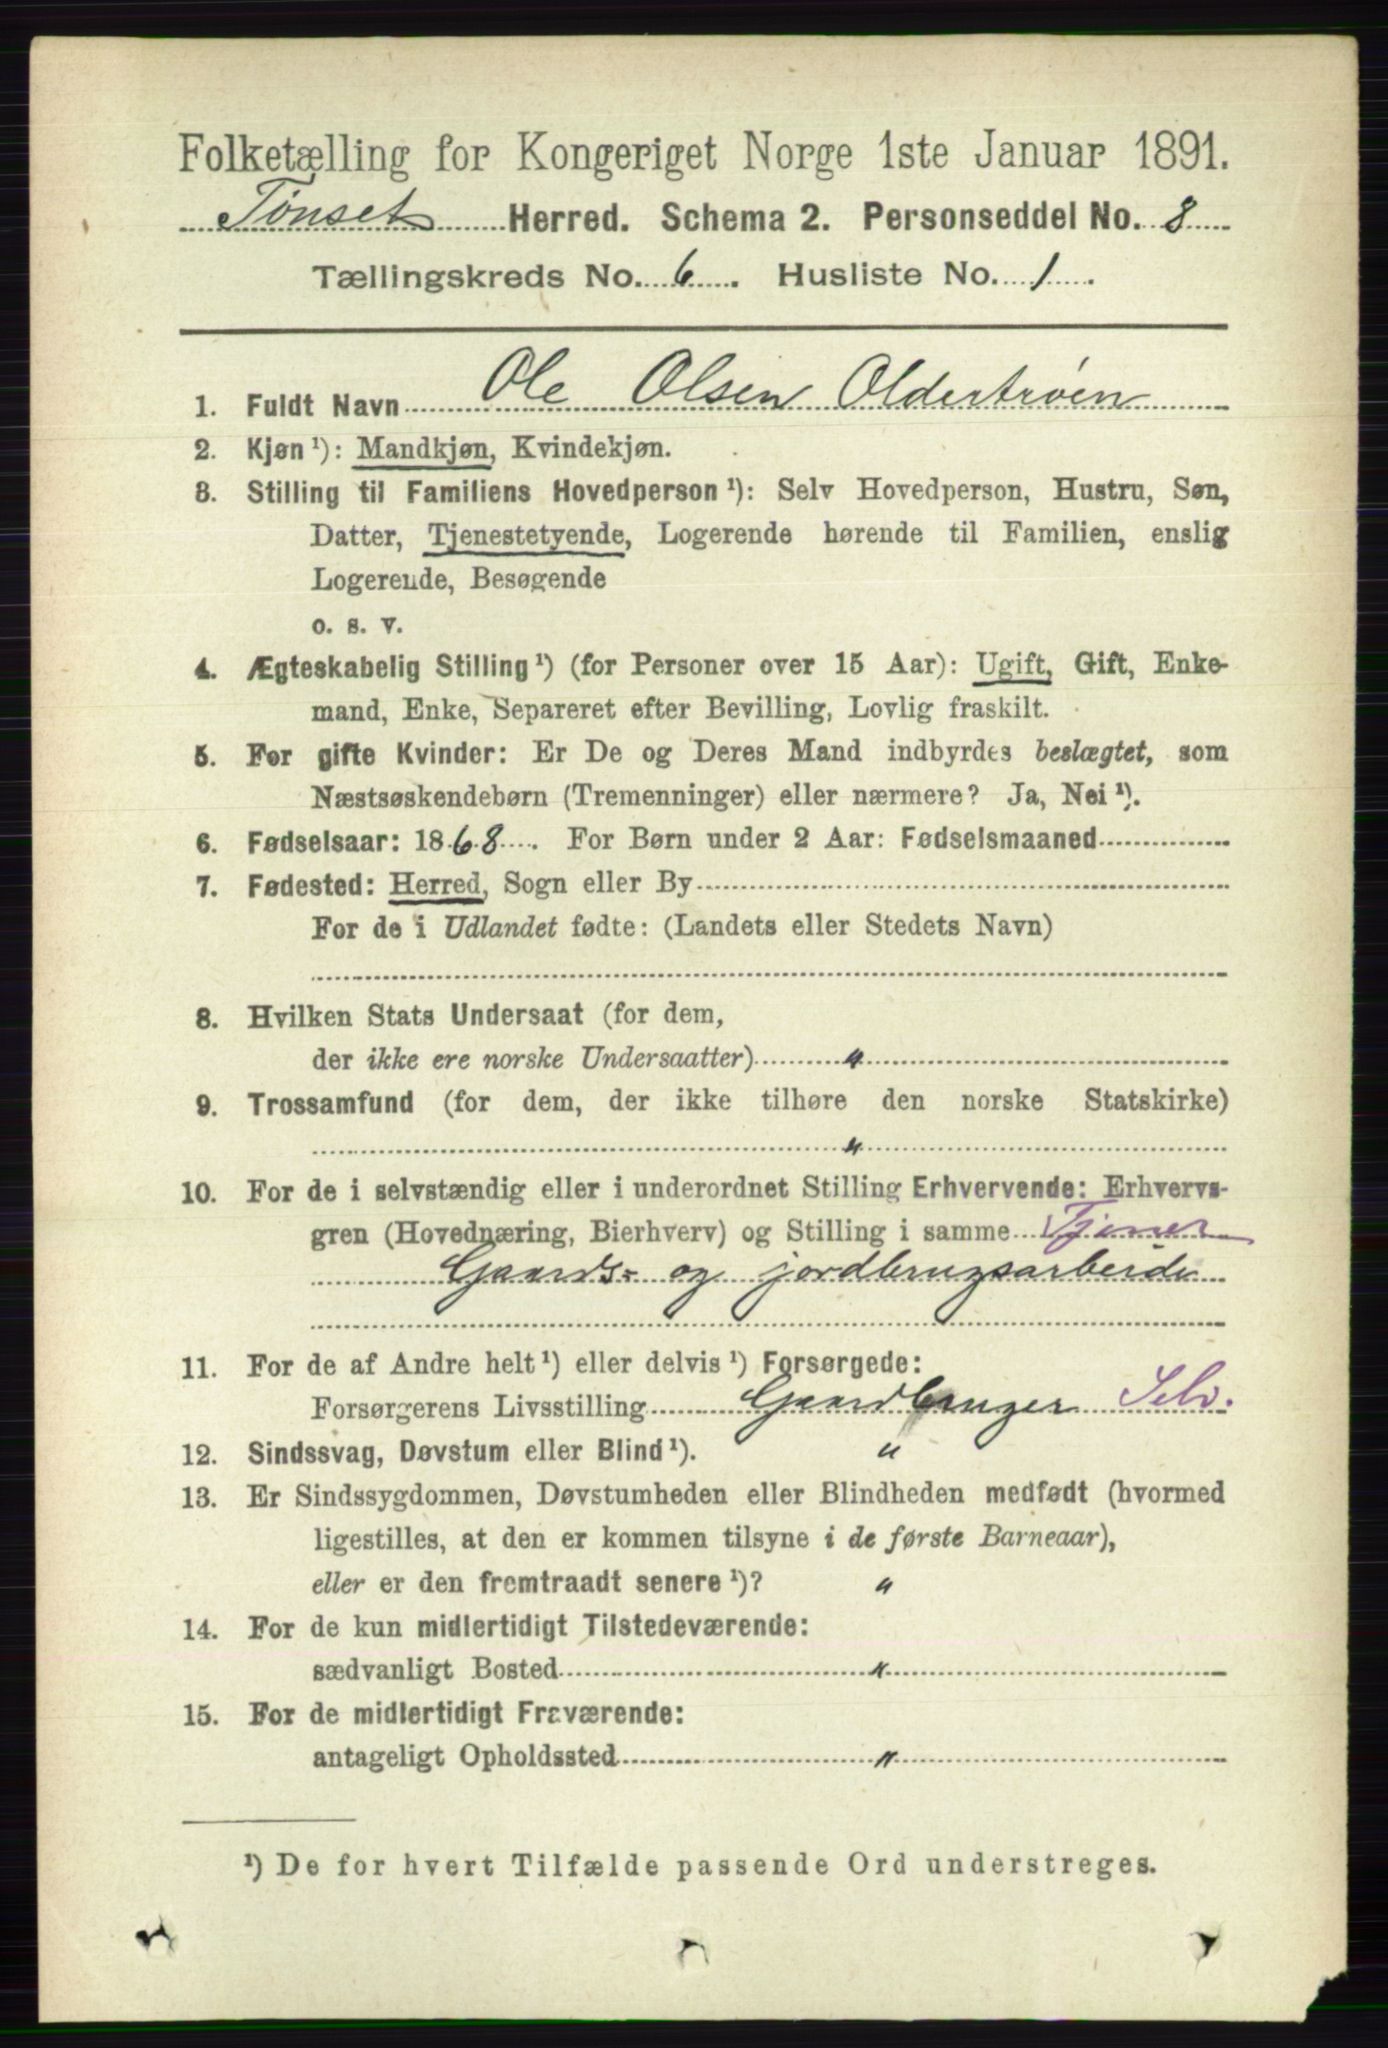 Folketælling for Kongeriget Norge 1ste Januar 1891.
Tønset Herred. Schema 2. Personseddel No. 8
Tællingskreds No. 6. Husliste No. 1.
1. Fuldt Navn Ole Olsen Oldertrøen
2. Kjøn¹): Mandkjøn, Kvindekjøn.
3. Stilling til Familiens Hovedperson¹): Selv Hovedperson, Hustru, Søn,
Datter, Tjenestetyende, Logerende hørende til Familien, enslig
Logerende, Besøgende
o. s. v.
4. Ægteskabelig Stilling¹) (for Personer over 15 Aar): Ugift, Gift, Enke-
mand, Enke, Separeret efter Bevilling, Lovlig fraskilt.
5. For gifte Kvinder: Er De og Deres Mand indbyrdes beslægtet, som
Næstsøskendebørn (Tremenninger) eller nærmere? Ja, Nei¹).
6. Fødselsaar: 1868. For Børn under 2 Aar: Fødselsmaaned
7. Fødested: Herred, Sogn eller By
For de i Udlandet fødte: (Landets eller Stedets Navn)
8. Hvilken Stats Undersaat (for dem,
der ikke ere norske Undersaatter) "
9. Trossamfund (for dem, der ikke tilhøre den norske Statskirke)
"
10. For de i selvstændig eller i underordnet Stilling Erhvervende: Erhvervs-
gren (Hovednæring, Bierhverv) og Stilling i samme Tjener
Gaards- og jordbrugsarbeide
11. For de af Andre helt¹) eller delvis¹) Forsørgede:
Forsørgerens Livsstilling Gaardbruger Selv.
12. Sindssvag, Døvstum eller Blind¹). "
13. Er Sindssygdommen, Døvstumheden eller Blindheden medfødt (hvormed
ligestilles, at den er kommen tilsyne i de første Barneaar),
eller er den fremtraadt senere¹)? "
14. For de kun midlertidigt Tilstedeværende:
sædvanligt Bosted "
15. For de midlertidigt Fraværende:
antageligt Opholdssted "
¹) De for hvert Tilfælde passende Ord understreges.